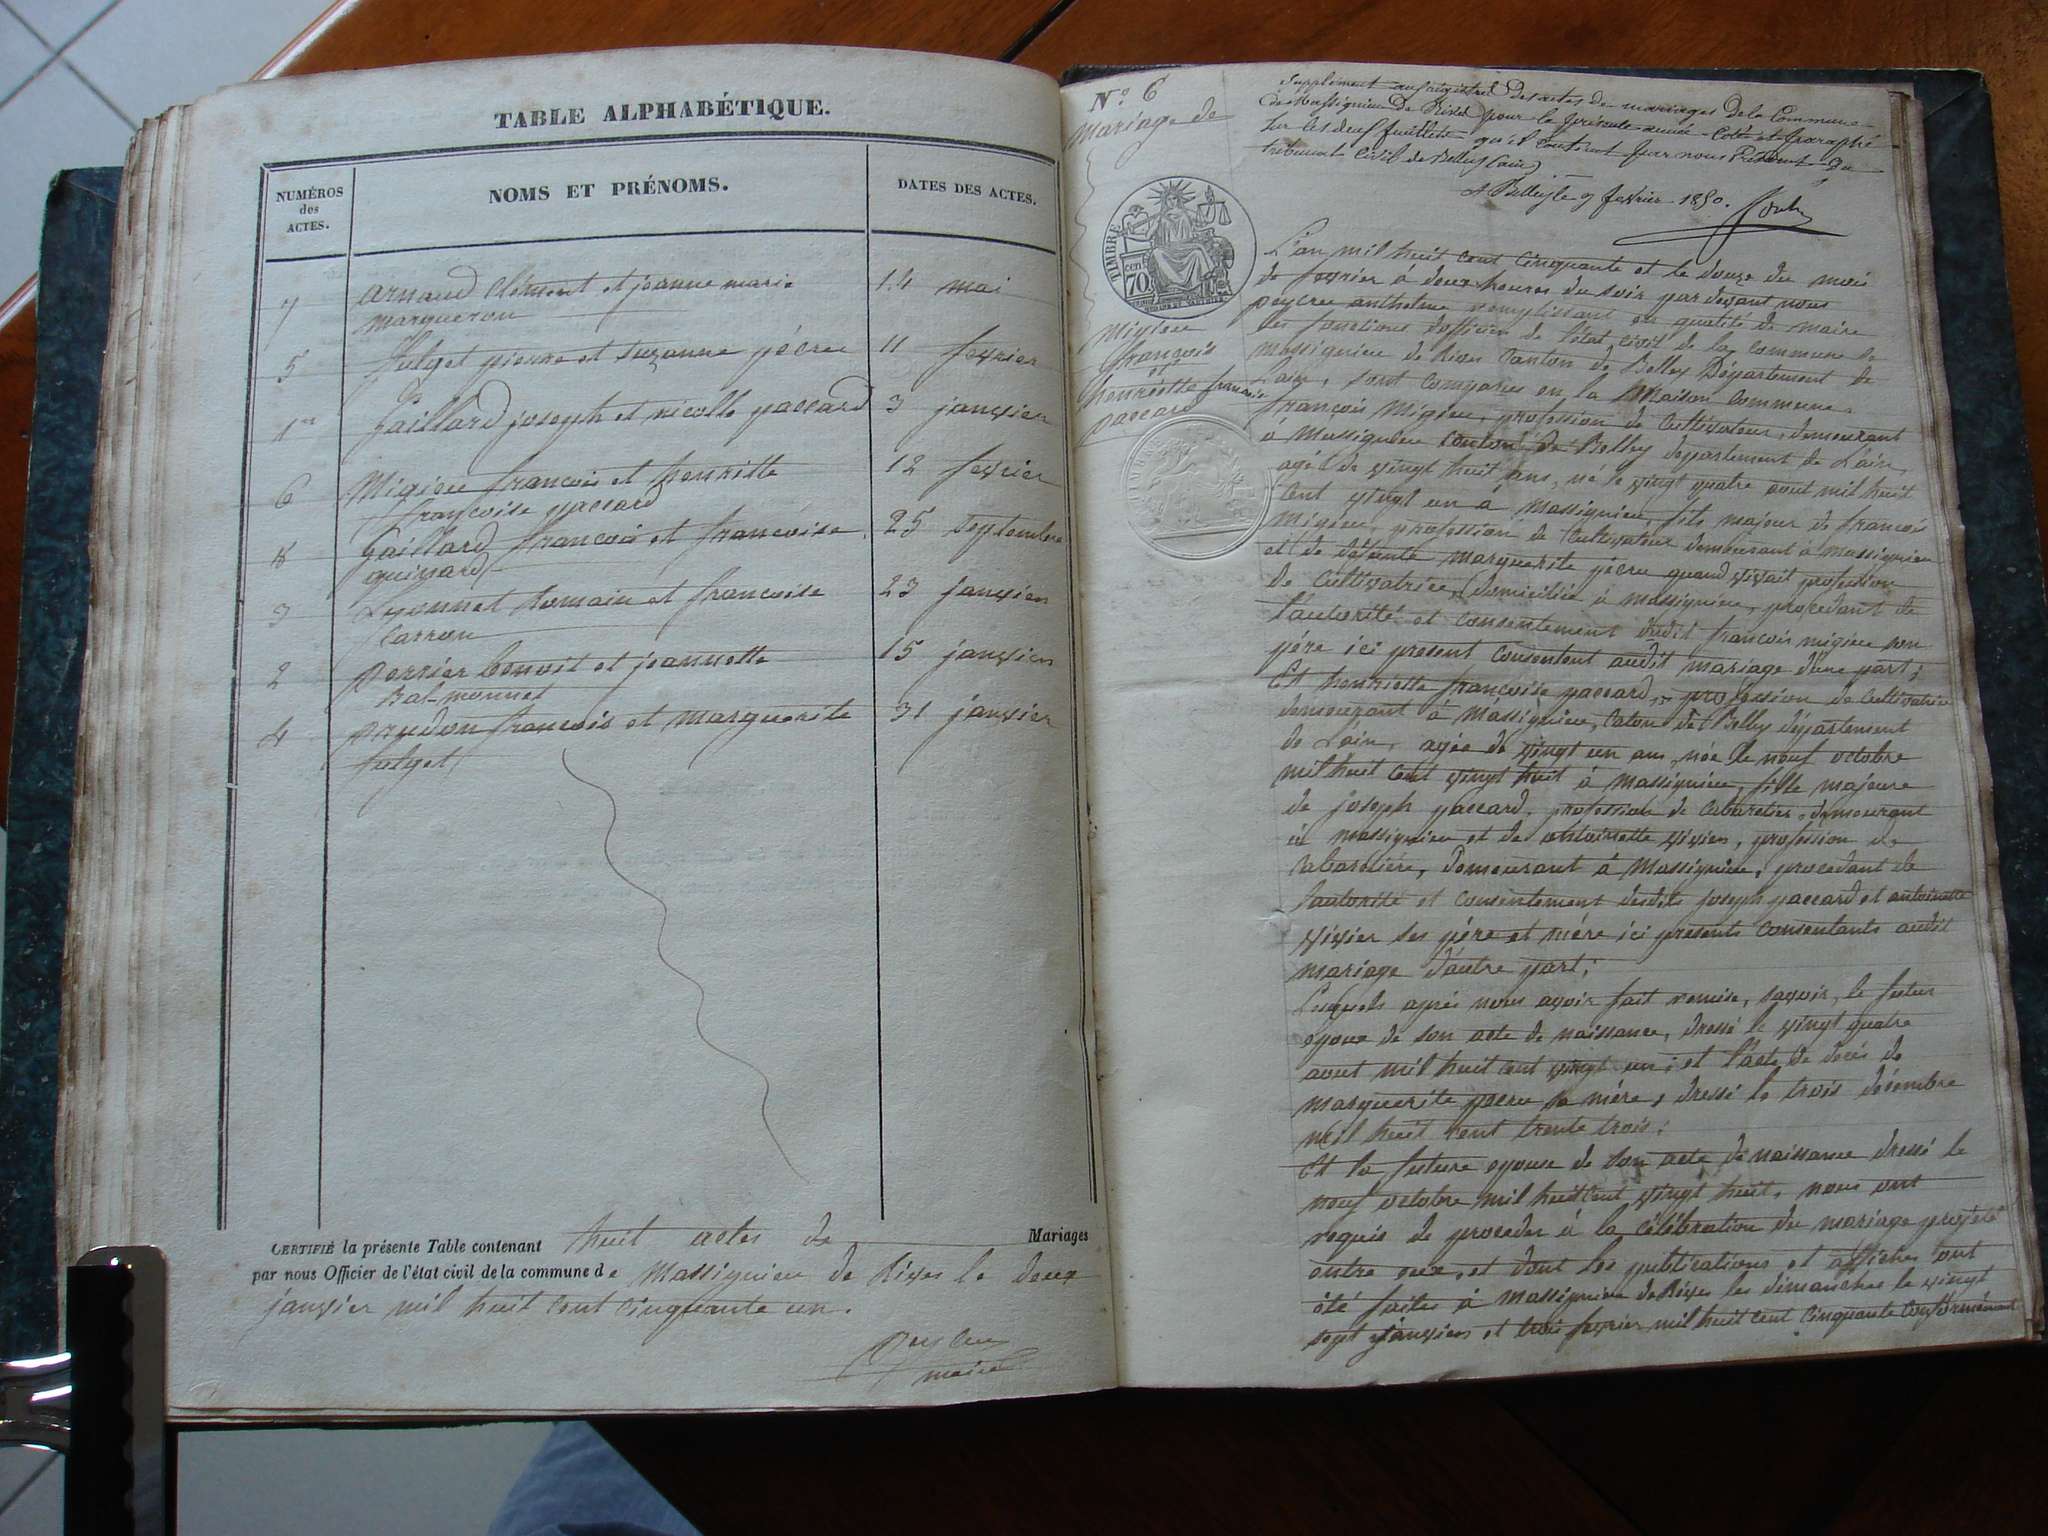 TABLE ALPHABÉTIQUE.
NUMÉROS
des
ACTES.
NOMS ET PRÉNOMS.
DATES DES ACTES.
7 arnaud Clément et jeanne marie 14 mai
marqueron
5 fulget pierre et suzanne pécru 11 fevrier
1er Gaillard joseph et nicolle paccard 3 janvier
6 Migieu francois et henriette 12 fevrier
françoise paccard
8 Gaillard francois et francoise 25 septembre
quinard
3 Lyonnet romain et francoise 23 janvier
Carron
2 perrier benoit et jeannette 15 janvier
Bal-monnet
4 prudon francois et marguerite 31 janvier
fulget
CERTIFIÉ la présente Table contenant huit actes de Mariages
par nous Officier de l'état civil de la commune de Massignieu de Rives le deux
janvier mil huit cent cinquante un.
maire
N.° 6
Mariage de
Migieu
françois
et
henriette françoise
paccard
Supplément au registre des actes de mariages de la Commune
de Massignieu de Rives pour la présente année Coté et paraphé
sur les deux feuillets qu'il contient par nous Président du
tribunal Civil de Belley (ain)
A Belley le 9 fevrier 1850.
TIMBRE
70 cen
L'an mil huit cent cinquante et le douze du mois
de fevrier à deux heures du soir par devant nous
peycru anthelme remplissant en qualité de maire
les fonctions d'officier de l'état civil de la commune de
massignieu de Rives Canton de Belley Département de
L'ain, sont comparus en la Maison Commune.
françois Migieu, profession de Cultivateur, demeurant
à Massignieu canton de Belley departement de L'ain,
agé de vingt huit ans, né le vingt quatre aout mil huit
Cent vingt un à Massignieu, fils majeur de françois
Migieu, profession de Cultivateur demeurant à Massignieu
et de défunte marguerite pécru quand vivait profession
de Cultivatrice, domiciliée à massignieu, procedant de
l'autorité et consentement dudit françois migieu son
père ici present consentent audit mariage d'une part;
Et henriette françoise paccard, profession de cultivatrice
demeurant à Massignieu, Caton de Belley département
de Lain, agée de vingt un ans, née le neuf octobre
mil huit cent vingt huit à Massignieu, fille majeure
de joseph paccard, profession de Cabaretier, demeurant
à massignieu et de antoinette vivier, profession de
Cabaretière, demeurant à Massignieu, procedant de
l'autorité et consentement desdits joseph paccard et antoinette
vivier ses père et mère ici presents Consentants audit
mariage d'autre part;
Lesquels après nous avoir fait remise, savoir, le futur
epoux de son acte de naissance, dressé le vingt quatre
aout mil huit cent vingt un; et l'acte de decés de
marguerite pecru sa mére, dressé le trois décembre
mil huit cent trente trois;
Et la future epouse de son acte de naissance dressé le
neuf octobre mil huit cent vingt huit, nous ont
requis de proceder à la célébration du mariage projeté
entre eux, et dont les publications et affiches ont
été faites à Massignieu de Rives les dimanches le vingt
sept janvier et trois fevrier mil huit cent cinquante conformément